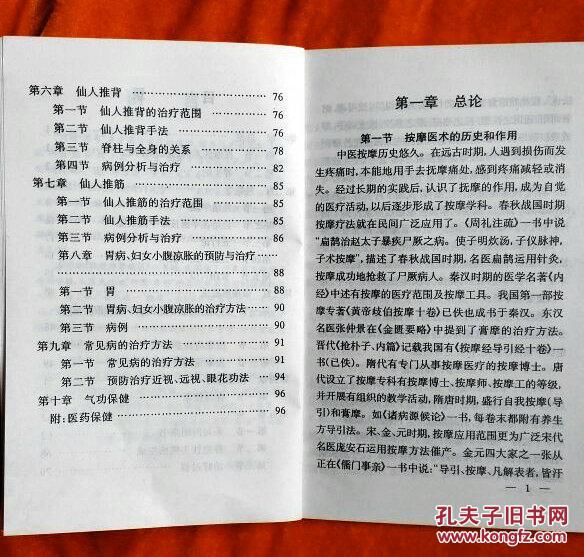 第六章 仙人推背 …… 76
第一节 仙人推背的治疗范围 …… 76
第二节 仙人推背手法 …… 76
第三节 脊柱与全身的关系 …… 78
第四节 病例分析与治疗 …… 82
第七章 仙人推筋 …… 85
第一节 仙人推筋的治疗范围 …… 85
第二节 仙人推筋手法 …… 85
第三节 病例分析与治疗 …… 86
第八章 胃病、妇女小腹凉胀的预防与治疗 ……
…… 88
第一节 胃 …… 88
第二节 胃病、妇女小腹凉胀的治疗方法 …… 90
第三节 病例 …… 90
第九章 常见病的治疗方法 …… 91
第一节 常见病的治疗方法 …… 91
第二节 预防治疗近视、远视、眼花功法 …… 94
第十章 气功保健 …… 96
附:医药保健 …… 96
第一章 总论
第一节 按摩医术的历史和作用
中医按摩历史悠久。在远古时期,人遇到损伤而发
生疼痛时,本能地用手去抚摩痛处,感到疼痛减轻或消
失。经过长期的实践后,认识了抚摩的作用,成为自觉
的医疗活动,以后逐步形成了按摩学科。春秋战国时期
按摩疗法就在民间广泛应用了。《周礼注疏》一书中说
“扁鹊治赵太子暴疾尸厥之病。使子明炊汤,子仪脉神,
子术按摩”,描述了春秋战国时期,名医扁鹊运用针灸、
按摩成功地抢救了尸厥病人。秦汉时期的医学名著《内
经》中述有按摩的医疗范围及按摩工具。我国第一部按
摩专著《黄帝歧伯按摩十卷》已佚也成书于秦汉。东汉
名医张仲景在《金匮要略》中提到了膏摩的治疗方法。
晋代《抢朴子、内篇》记载我国有《按摩经导引经十卷》一
书(已佚)。隋代有专门从事按摩医疗的按摩博士。唐
代设立了按摩专科有按摩博士、按摩师、按摩工的等级,
并开展有组织的教学活动,隋唐时期,盛行自我按摩(导
引)和膏摩。如《诸病源候论》一书,每卷末都附有养生
方导引法。宋、金、元时期,按摩应用范围更为广泛宋代
名医庞安石运用按摩方法催产。金元四大家之一张从
正在《儒门事亲》一书中说:“导引、按摩、凡解表者,皆汗
— 1 —
孔夫子旧书网
www.kongfz.com